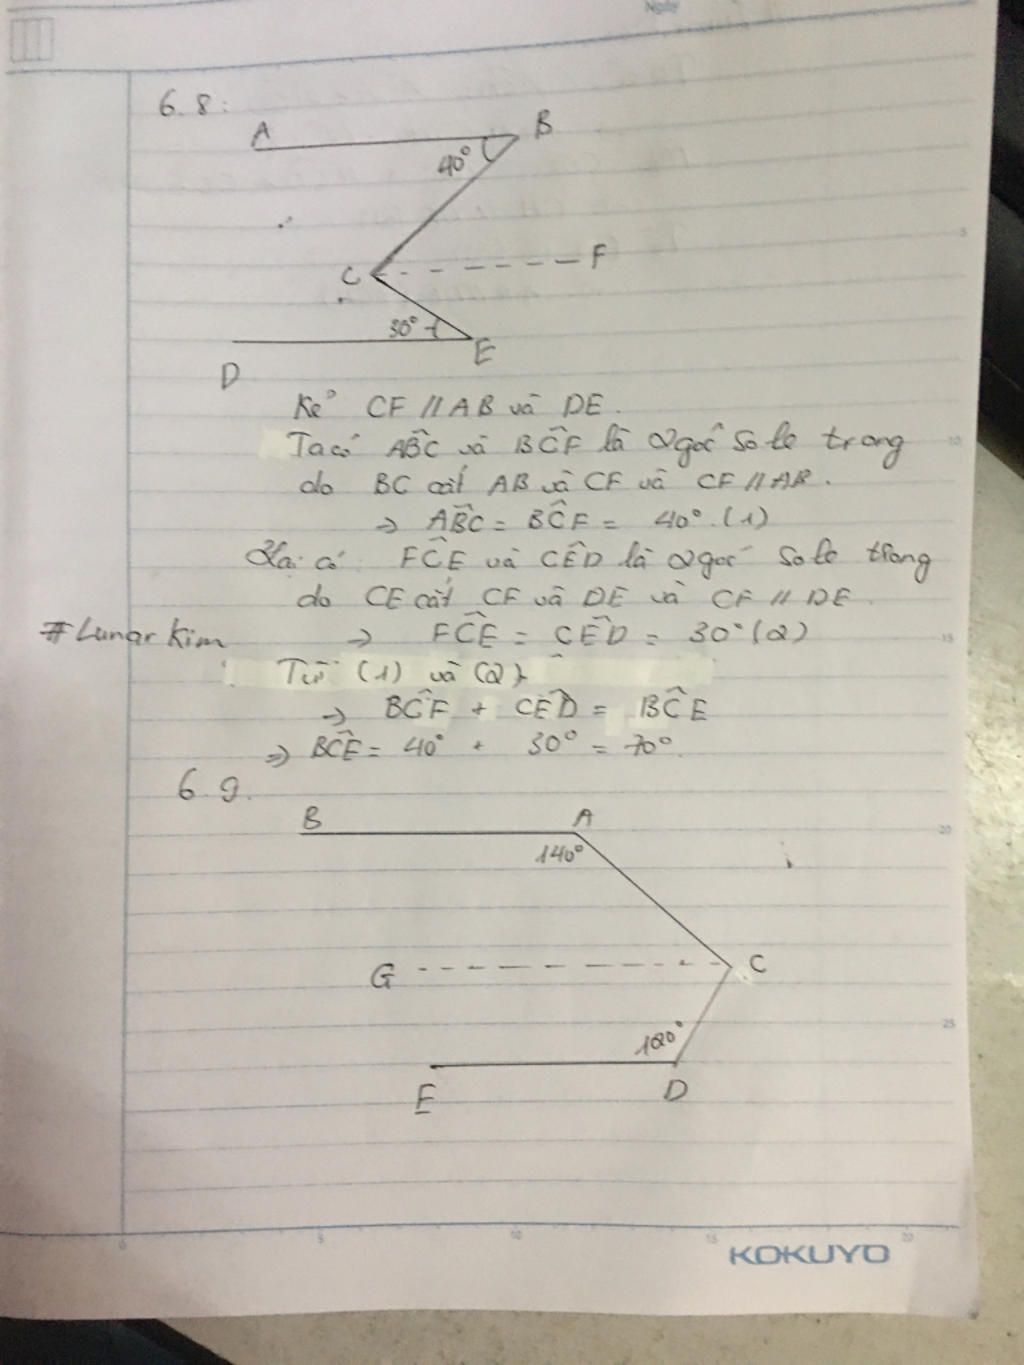 Ngày
6.8:
A
B
40°
C
F
30°
D
E
Kẻ CF // AB và DE.
Ta có ABC và BCF là 2 góc so le trong
do BC cắt AB và CF và CF // AB.
⇒ ABC = BCF = 40°. (1)
Lại có FCE và CED là 2 góc so le trong
do CE cắt CF và DE và CF // DE
# Lunar Kim
⇒ FCE = CED = 30° (2)
Từ (1) và (2)
⇒ BCF + CED = BCE
⇒ BCE = 40° + 30° = 70°.
6.9.
B
A
140°
G
C
120°
E
D
5
10
15
20
25
0 5 10 15 20
KOKUYO